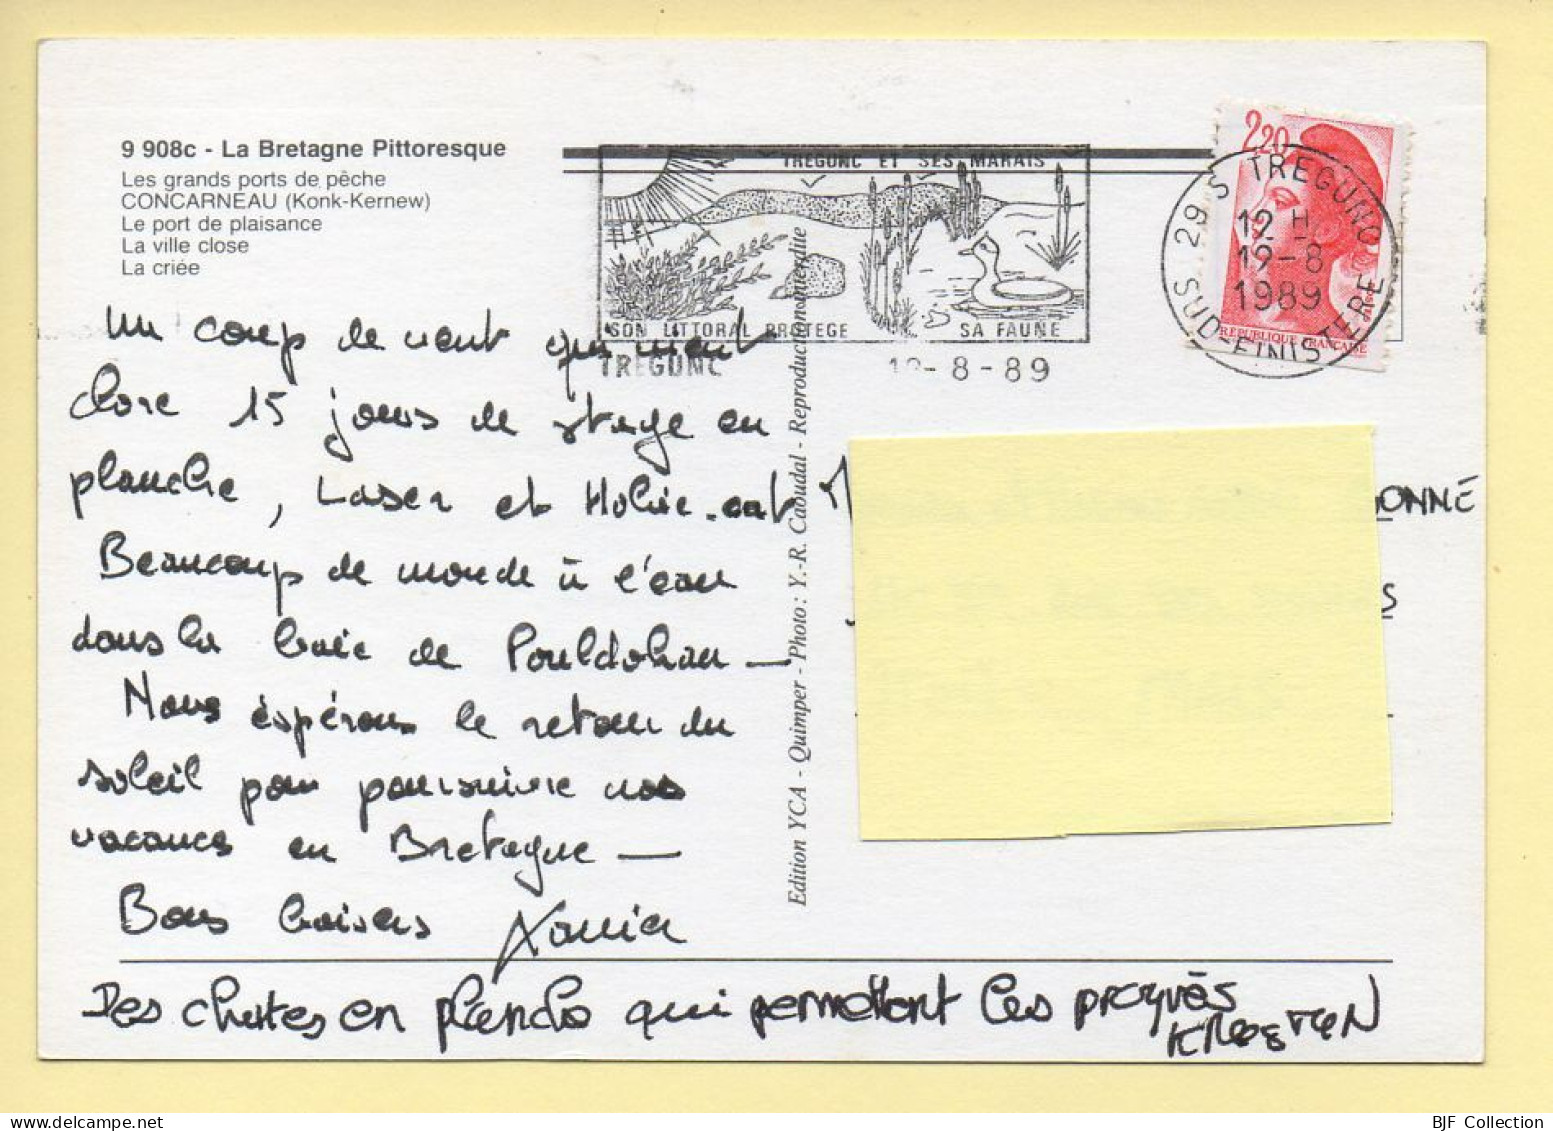 9 908c - La Bretagne Pittoresque
Les grands ports de pêche
CONCARNEAU (Konk-Kernew)
Le port de plaisance
La ville close
La criée
TREGUNC ET SES MARAIS
SON LITTORAL PROTEGE SA FAUNE
TREGUNC
-8-89
2,20
RÉPUBLIQUE FRANÇAISE
29 S TREGUNC
12 H
12-8
1989
SUD-FINISTERE
Un coup de vent qui vient
clore 15 jours de stage en
planche, Laser et Hobie-cat
Beaucoup de monde à l'eau
dans la baie de Pouldohan —
Nous éspérons le retour du
soleil pour poursuivre nos
vacances en Bretagne —
Bons baisers Xavier
Des chutes en planche qui permettent les progrès
Edition YCA - Quimper - Photo : Y.-R. Caoudal - Reproduction interdite
ONNE
S
BJF Collection